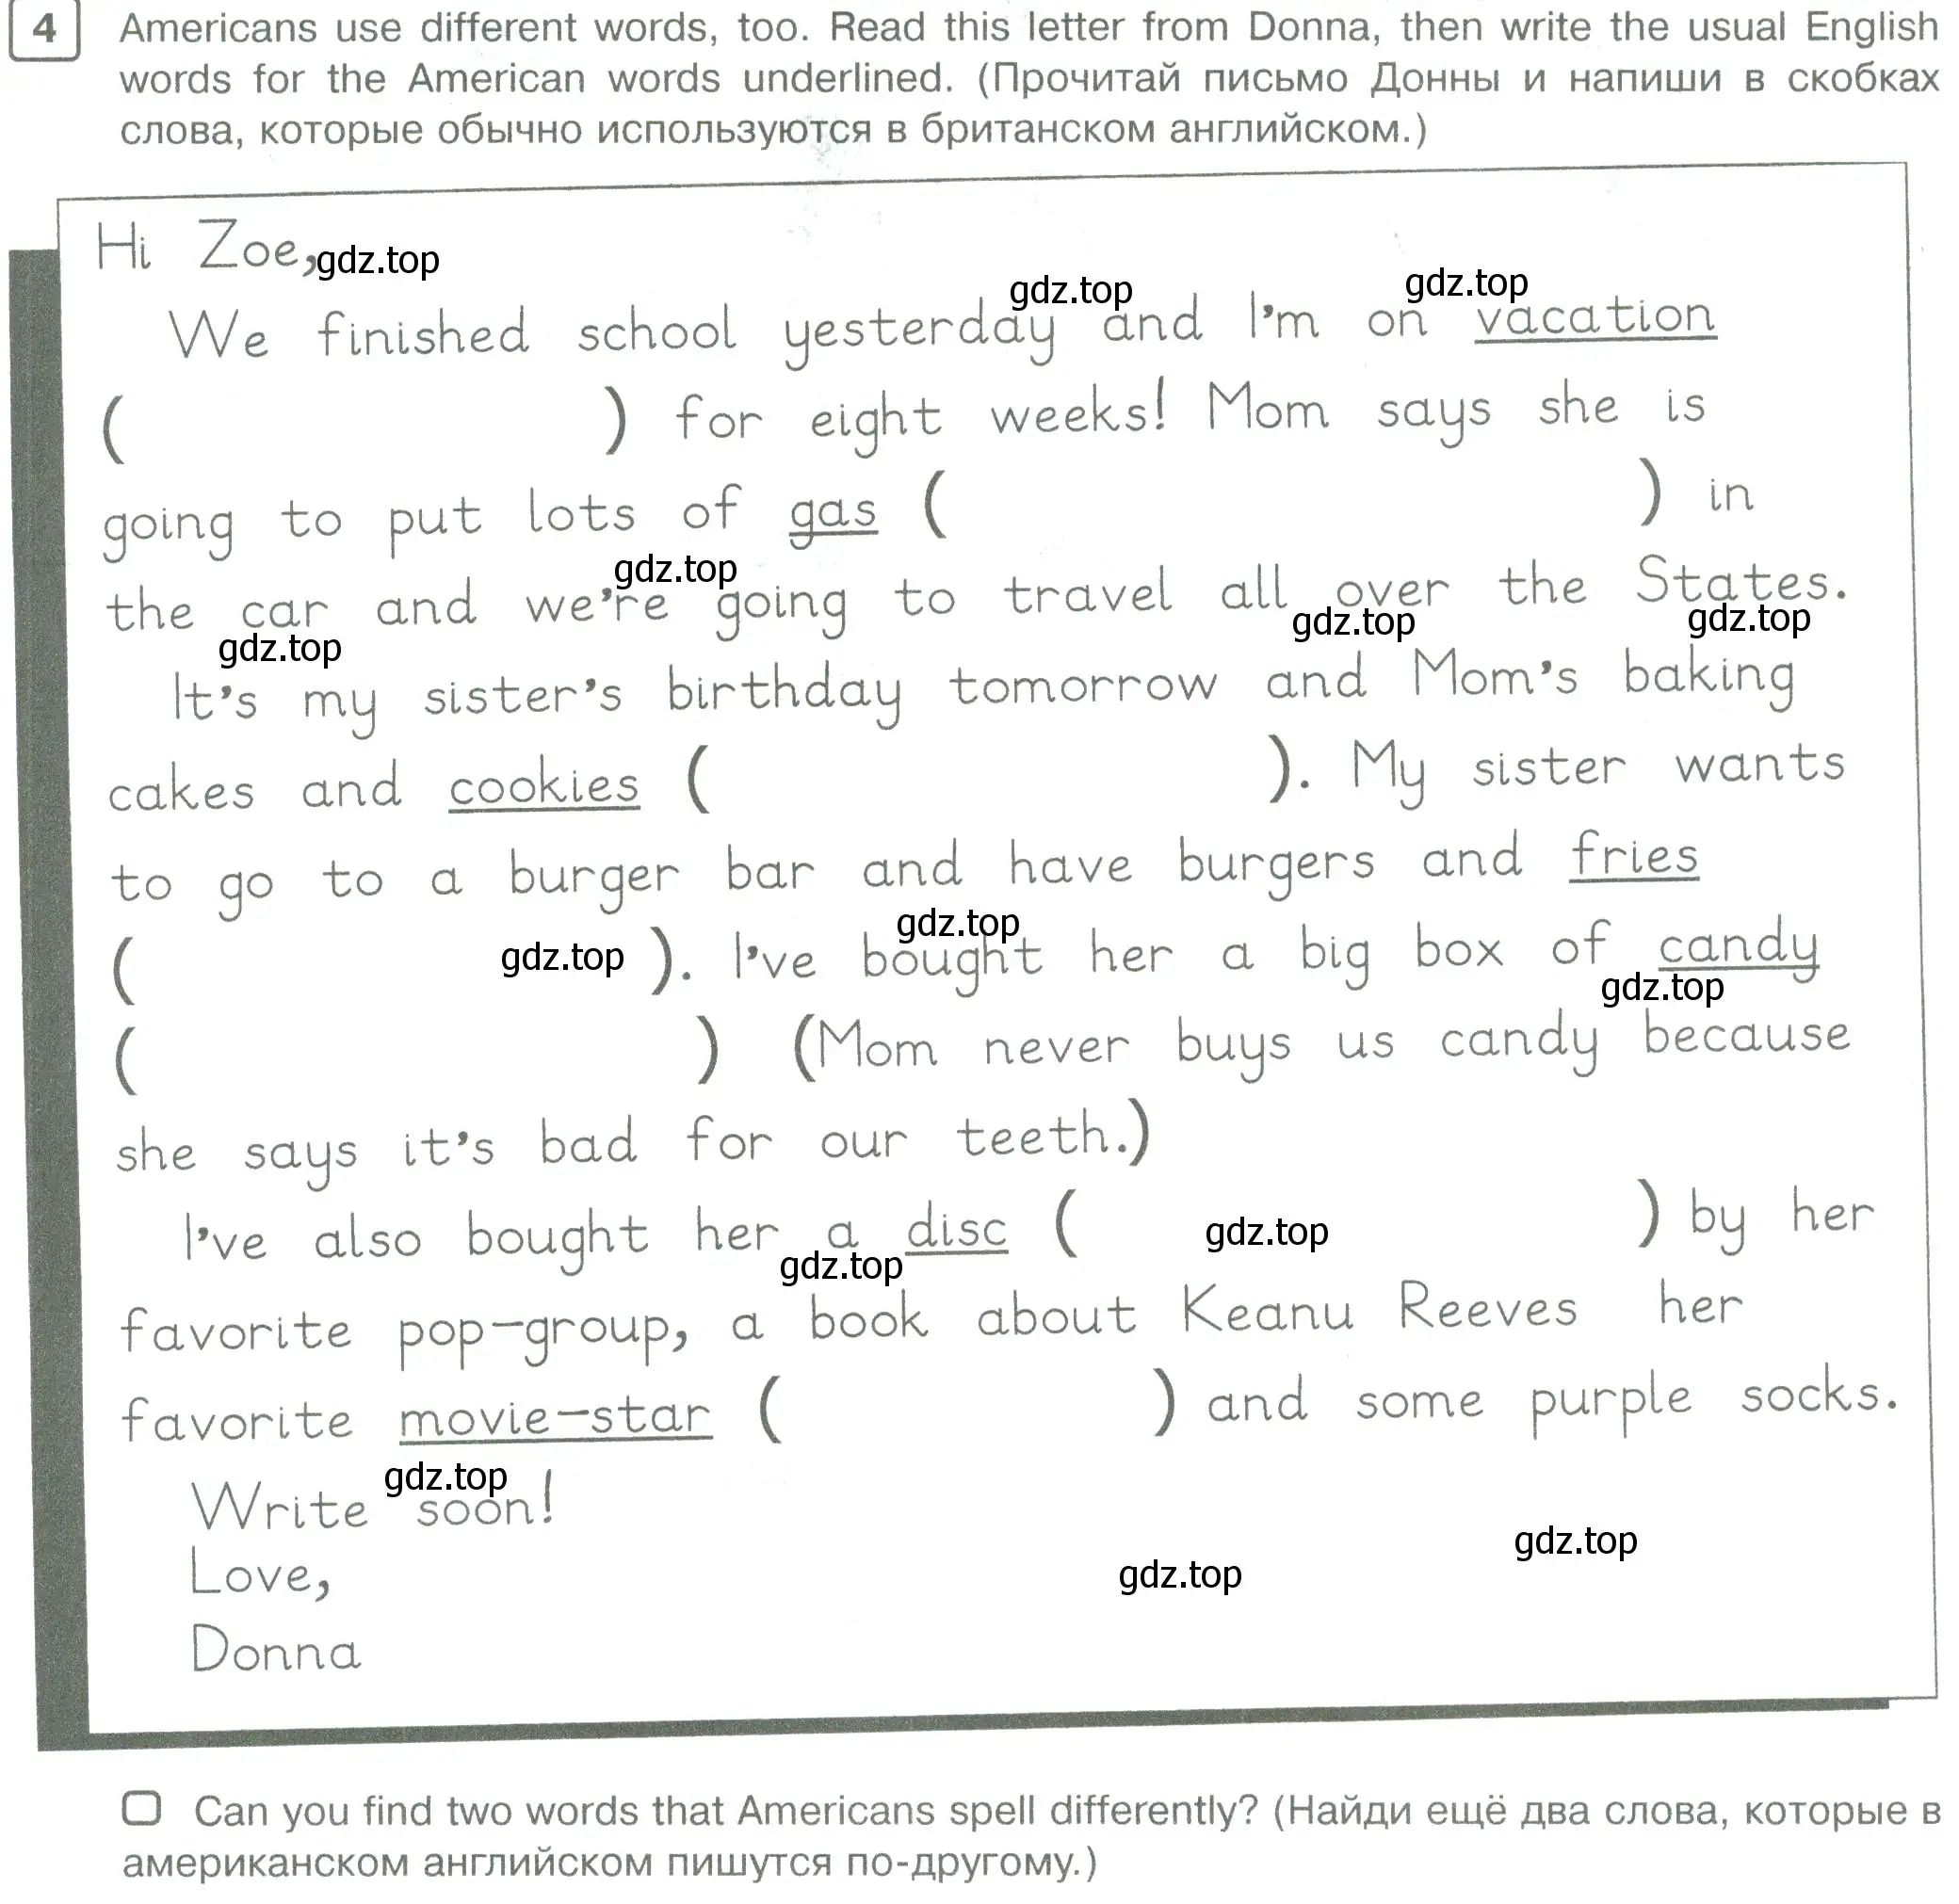 4 Americans use different words, too. Read this letter from Donna, then write the usual English
words for the American words underlined. (Прочитай письмо Донны и напиши в скобках
слова, которые обычно используются в британском английском.)
Hi Zoe, gdz.top
gdz.top gdz.top
We finished school yesterday and I'm on vacation
( ) for eight weeks! Mom says she is
going to put lots of gas ( ) in
gdz.top
the car and we're going to travel all over the States.
gdz.top gdz.top gdz.top
It's my sister's birthday tomorrow and Mom's baking
cakes and cookies ( ). My sister wants
to go to a burger bar and have burgers and fries
gdz.top
( gdz.top ). I've bought her a big box of candy
gdz.top
( ) (Mom never buys us candy because
she says it's bad for our teeth.)
I've also bought her a disc ( gdz.top ) by her
gdz.top
favorite pop-group, a book about Keanu Reeves her
favorite movie-star ( ) and some purple socks.
gdz.top
Write soon!
gdz.top
Love, gdz.top
Donna
Can you find two words that Americans spell differently? (Найди ещё два слова, которые в
американском английском пишутся по-другому.)